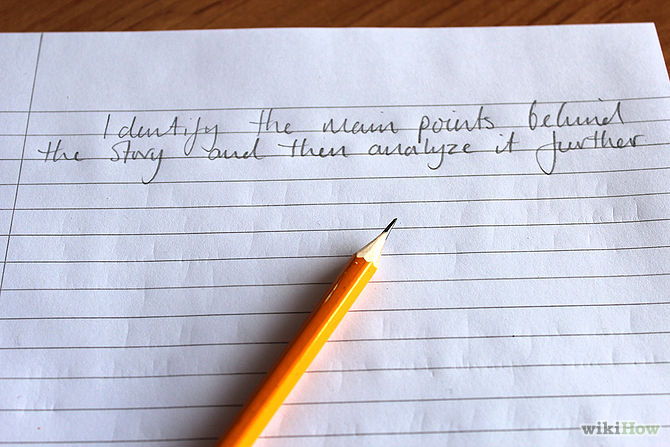 Identify the main points behind
the story and then analyze it further
wikiHow